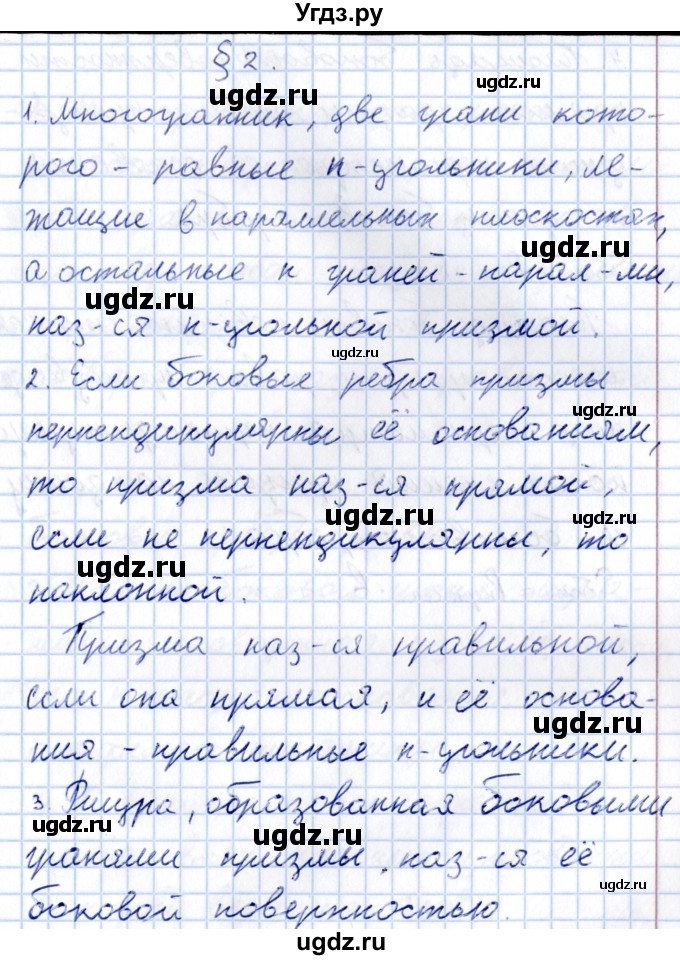 Угдз.ру
§ 2.
ugdz.ru
1. Многогранник, две грани кото-
рого - равные n-угольники, ле-
ugdz.ru
ugdz.ru
жащие в параллельных плоскостях,
ugdz.ru
а остальные n граней - парал-ми,
ugdz.ru
наз-ся n-угольной призмой.
ugdz.ru
2. Если боковые ребра призмы
ugdz.ru
перпендикулярны её основаниям,
ugdz.ru
то призма наз-ся прямой,
ugdz.ru
ugdz.ru
если не перпендикулярны, то
ugdz.ru
наклонной.
Призма наз-ся правильной,
ugdz.ru
если она прямая, и её основа-
ugdz.ru
ния - правильные n-угольники.
3. Фигура, образованная боковыми
ugdz.ru
ugdz.ru
ugdz.ru
гранями призмы, наз-ся её
ugdz.ru
боковой поверхностью.
ugdz.ru